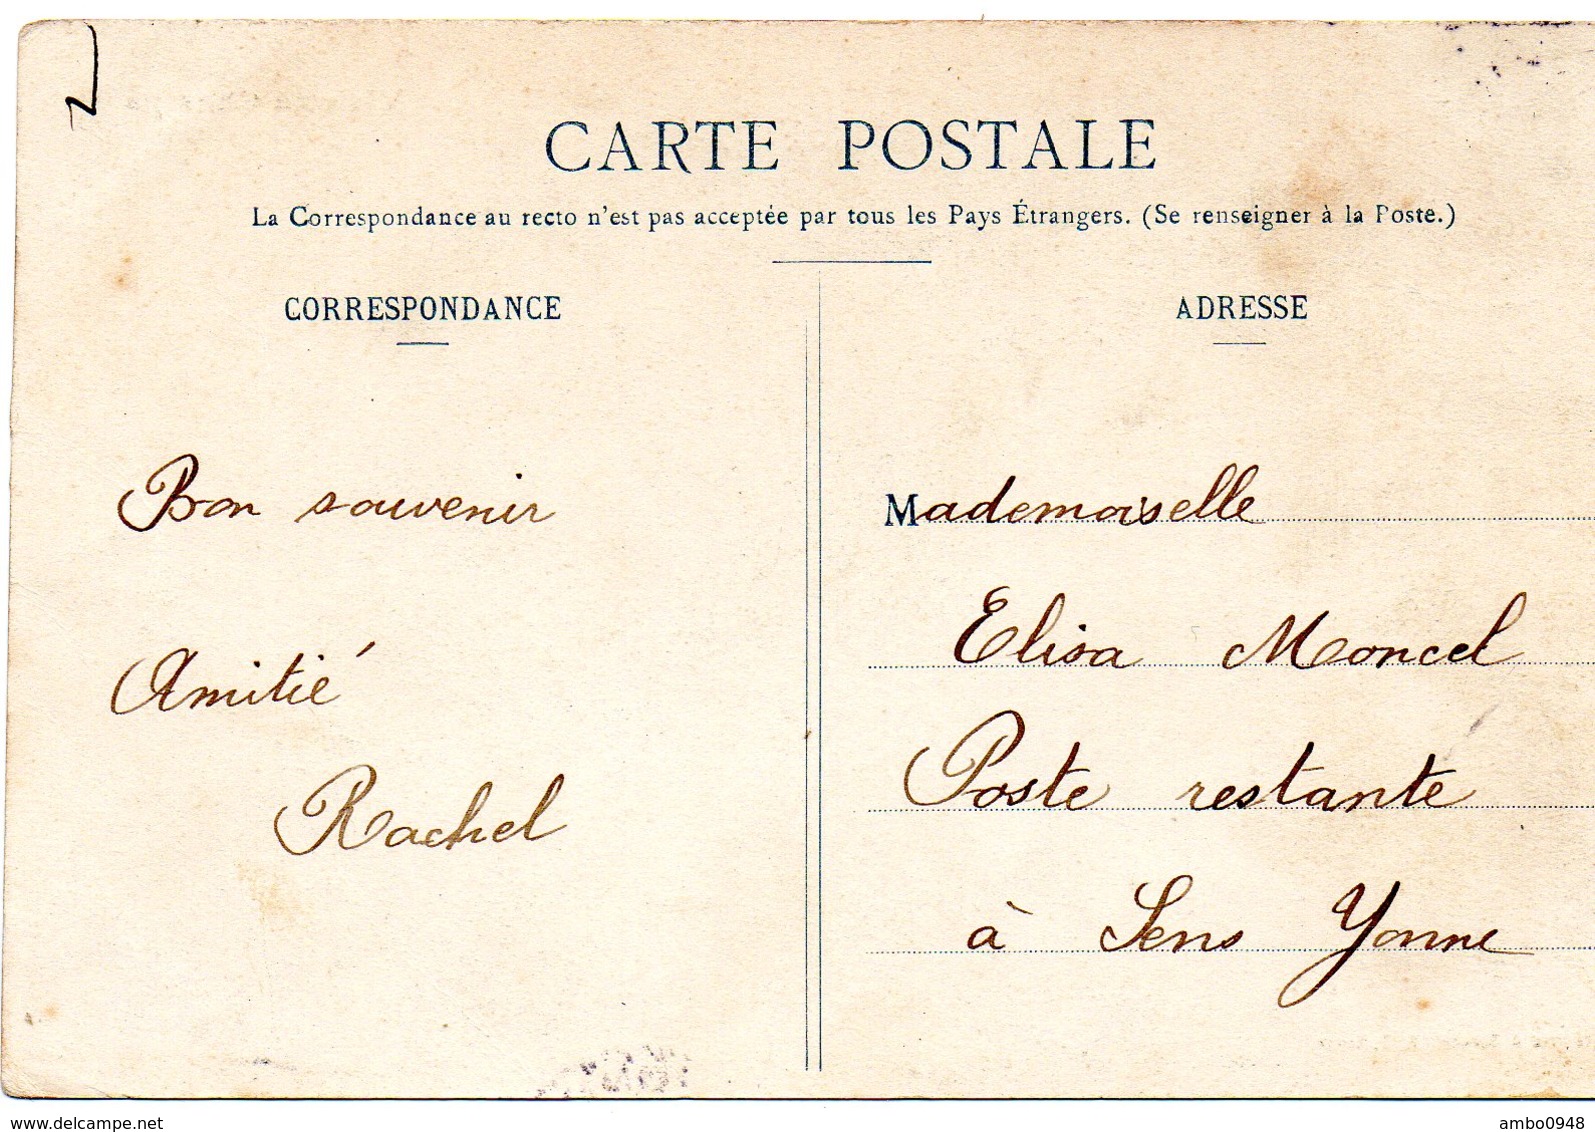 CARTE POSTALE
La Correspondance au recto n'est pas acceptée par tous les Pays Étrangers. (Se renseigner à la Poste.)
CORRESPONDANCE
Bon souvenir
Amitié
Rachel
ADRESSE
Mademoiselle
Elisa Moncel
Poste restante
à Sens Yonne
www.delcampe.net
ambo0948